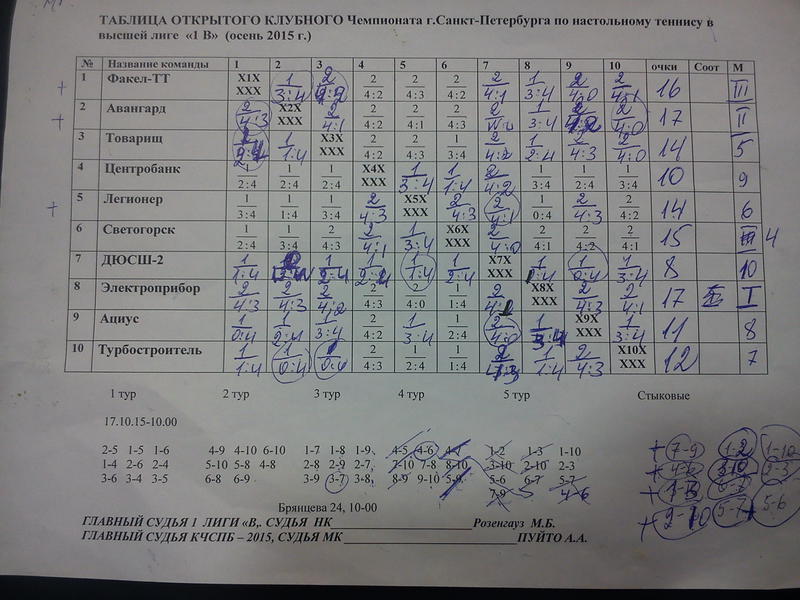 ТАБЛИЦА ОТКРЫТОГО КЛУБНОГО Чемпионата г.Санкт-Петербурга по настольному теннису в
высшей лиге «1 В» (осень 2015 г.)
№ Название команды 1 2 3 4 5 6 7 8 9 10 очки Соот М
1 Факел-ТТ Х1Х ХХХ 1 3:4 2 2 4:2 2 4:3 2 4:2 2 4:1 1 3:4 2 4:0 2 4:1 16 III
2 Авангард 2 4:3 Х2Х ХХХ 2 4:1 2 4:2 2 4:1 2 4:3 2 1 3:4 2 2 4:0 17 II
3 Товарищ 2 1 1:4 Х3Х ХХХ 2 4:2 2 4:3 1 3:4 2 4:2 1 2:4 2 4:3 2 4:0 14 5
4 Центробанк 1 2:4 1 2:4 1 2:4 Х4Х ХХХ 1 3:4 1 1:4 2 4:2 1 3:4 1 2:4 1 3:4 10 9
5 Легионер 1 3:4 1 1:4 1 3:4 2 4:3 Х5Х ХХХ 2 4:3 2 4:1 1 0:4 2 4:3 2 4:2 14 6
6 Светогорск 1 2:4 1 3:4 2 4:3 2 4:1 1 3:4 Х6Х ХХХ 2 4:0 2 4:1 2 4:2 2 4:1 15 4
7 ДЮСШ-2 1 1:4 1 2:4 1 1 1:4 1 2:4 Х7Х ХХХ 1:4 1 0:4 1 3:4 8 10
8 Электроприбор 2 4:3 2 4:3 2 4:2 2 4:3 2 4:0 1 1:4 2 Х8Х ХХХ 2 4:3 2 4:1 17 I
9 Ациус 1 0:4 1 2:4 1 3:4 2 4:2 1 3:4 1 2:4 2 4:0 1 3:4 Х9Х ХХХ 1 3:4 11 8
10 Турбостроитель 1 1:4 1 0:4 1 0:4 2 4:3 1 2:4 1 1:4 2 1 1:4 2 4:3 Х10Х ХХХ 12 7
1 тур 2 тур 3 тур 4 тур 5 тур Стыковые
17.10.15-10.00
2-5 1-5 1-6 4-9 4-10 6-10 1-7 1-8 1-9 4-5 4-6 1-2 1-3 1-10 + 7-9 1-2 1-10
1-4 2-6 2-4 5-10 5-8 4-8 2-8 2-9 2-7 7-10 7-8 8-10 3-10 2-10 2-3 + 3-10 2-3
3-6 3-4 3-5 6-8 6-9 3-9 3-7 3-8 8-9 9-10 5-6 6-7 5-7 + 1-3 6-7
7-9 4-6 + 2-10 5-7 5-6
Брянцева 24, 10-00
ГЛАВНЫЙ СУДЬЯ 1 ЛИГИ «В,. СУДЬЯ НК Розенгауз М.Б.
ГЛАВНЫЙ СУДЬЯ КЧСПБ – 2015, СУДЬЯ МК ПУЙТО А.А.